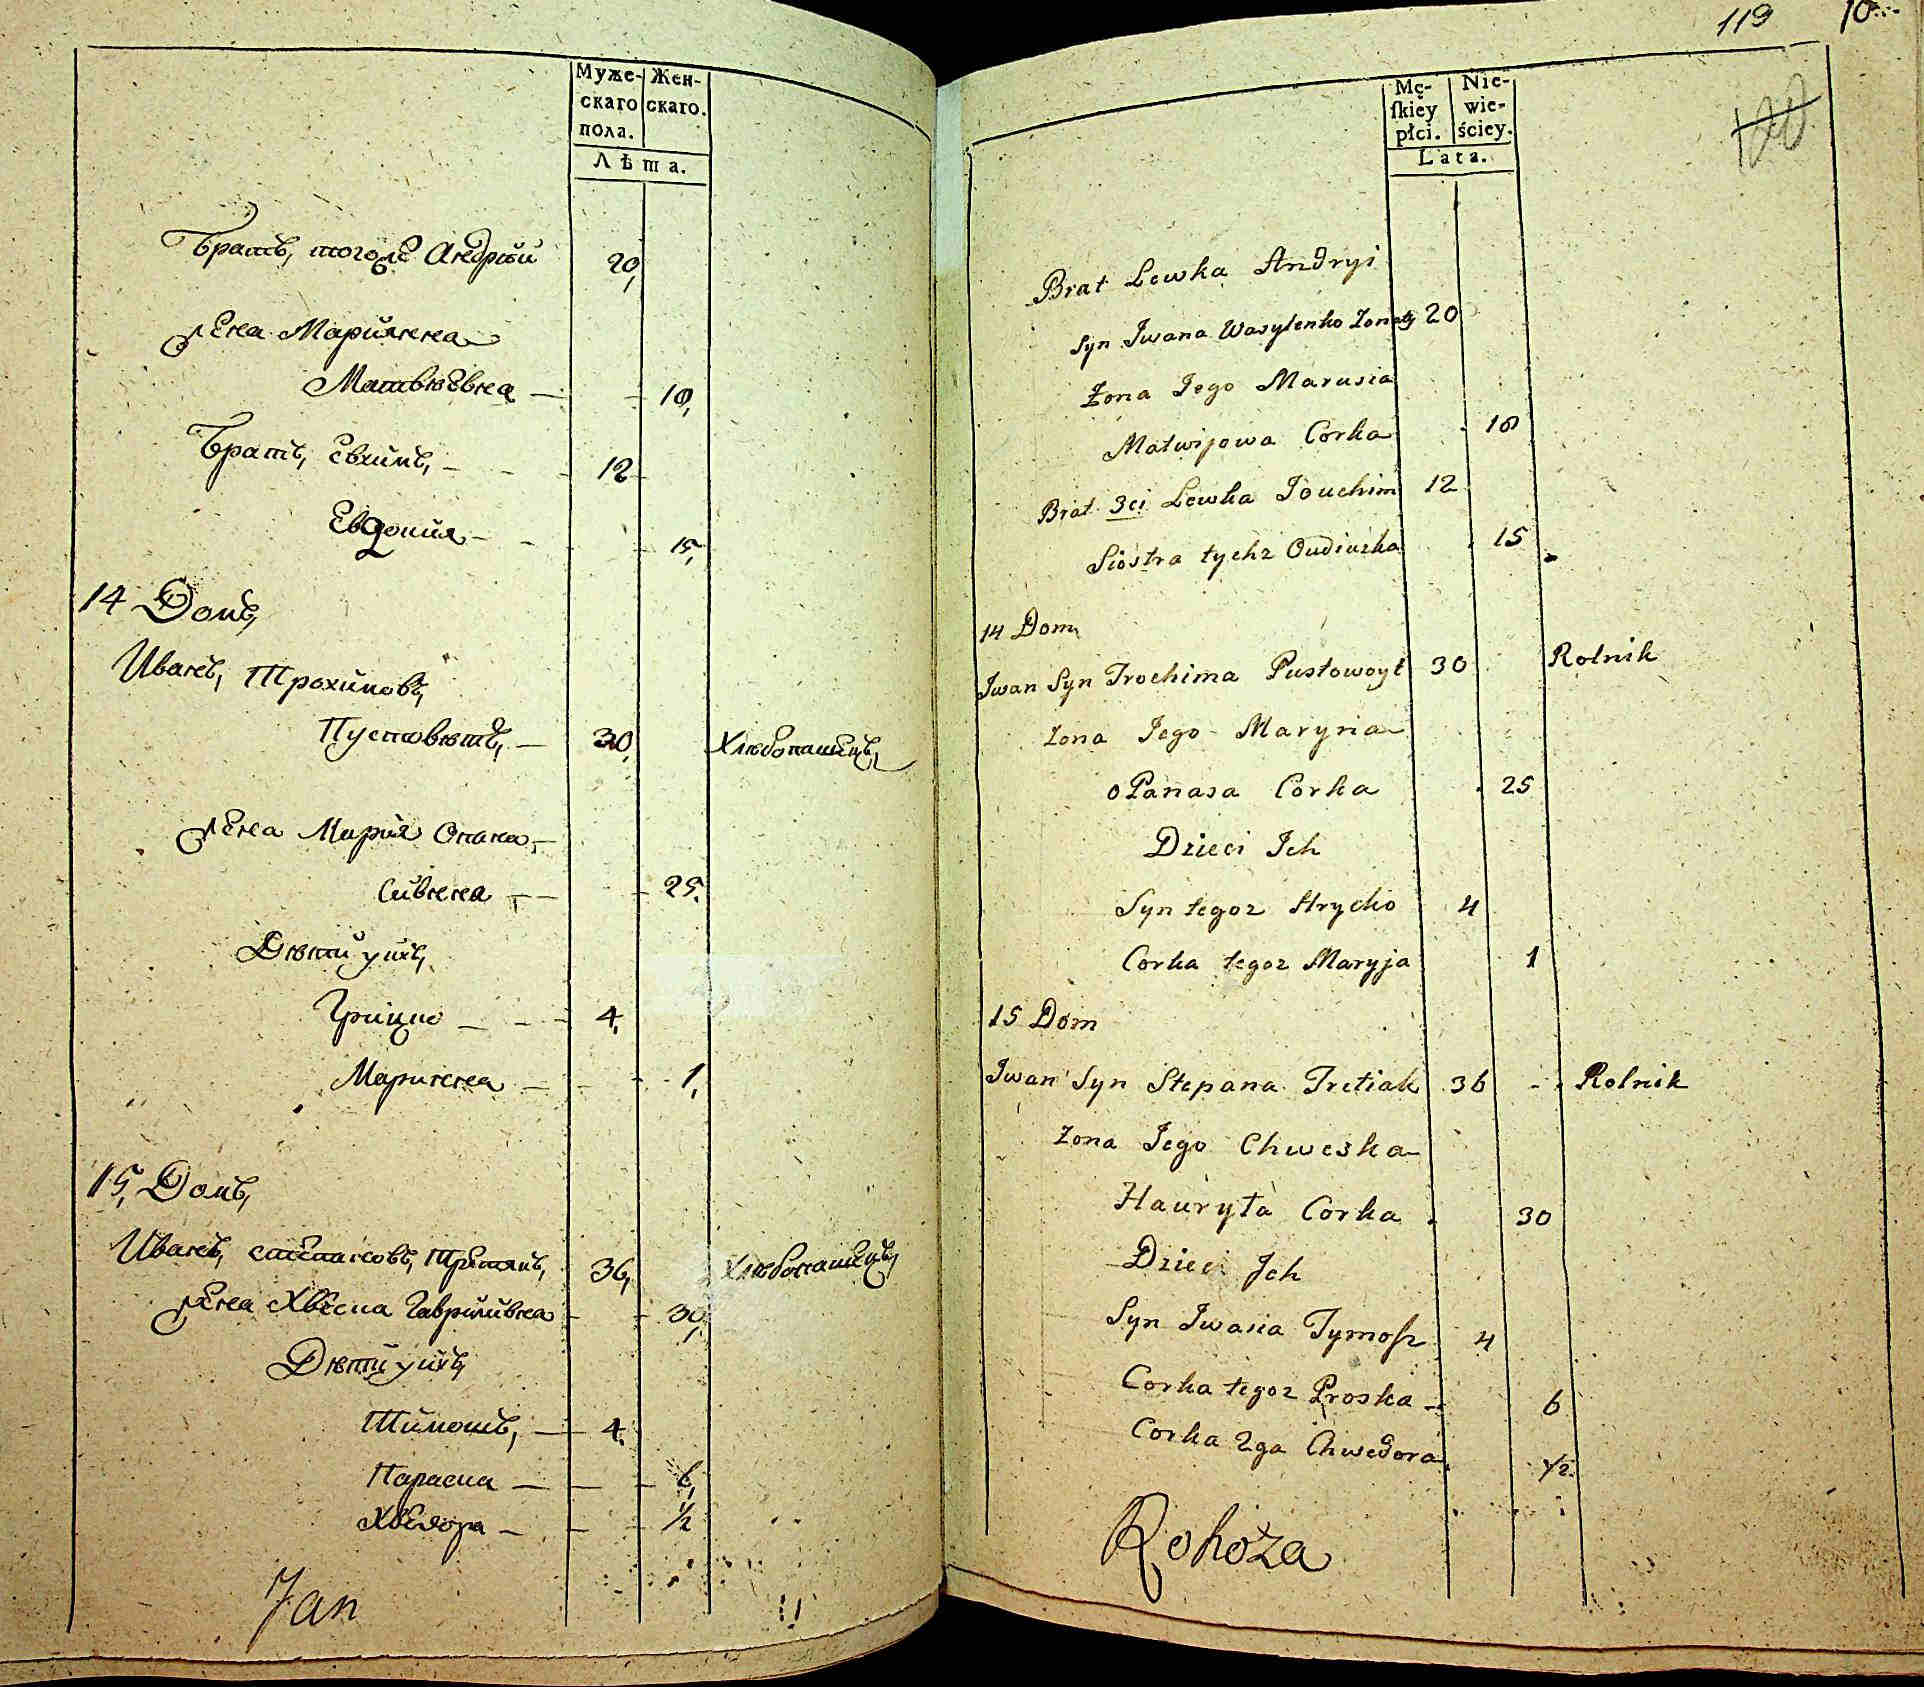 Муже-
скаго
пола.
Жен-
скаго.
Лѣта.
Братъ, тогоже Андрѣй 20,
жена Марiянна
Матвѣевна — 18,
Братъ, Евхимъ, — 12
Евдокия — 15,
14 Домъ,
Иванъ, Трохимовъ,
Пустовѣтъ, — 30, Хлѣбопашецъ,
жена Мария Опана-
сивна — 25.
Дѣти ихъ,
Грицко — 4,
Маринна — 1,
15, Домъ,
Иванъ, степановъ, третякъ, 36, Хлѣбопашецъ,
жена Хвеска Гавриливна 30,
Дѣти ихъ,
Тимошъ, — 4,
Параска — 6,
Хведора — 1/2
Jan
119 10
120
Mę-
ſkiey
płci.
Nie-
wie-
ściey.
Lata.
Brat Lewka Andryi
Syn Iwana Wasylenko Zonaty 20
Żona Jego Marusia
Matwijowa Corka 18
Brat 3ci Lewka Jouchim 12
Siostra tychz Oudiuzka 15
14 Dom
Iwan Syn Trochima Pustowoyt 30 Rolnik
Zona Jego Maryna
oPanasa Corka 25
Dzieci Ich
Syn tegoz Hrycko 4
Corka tegoz Maryja 1
15 Dom
Iwan Syn Stepana Tretiak 36 Rolnik
Zona Jego Chweska
Hauryła Corka 30
Dzieci Jch
Syn Iwana Tymoſz 4
Corka tegoz Proska 6
Corka 2ga Chwedora 1/2
Rohoża